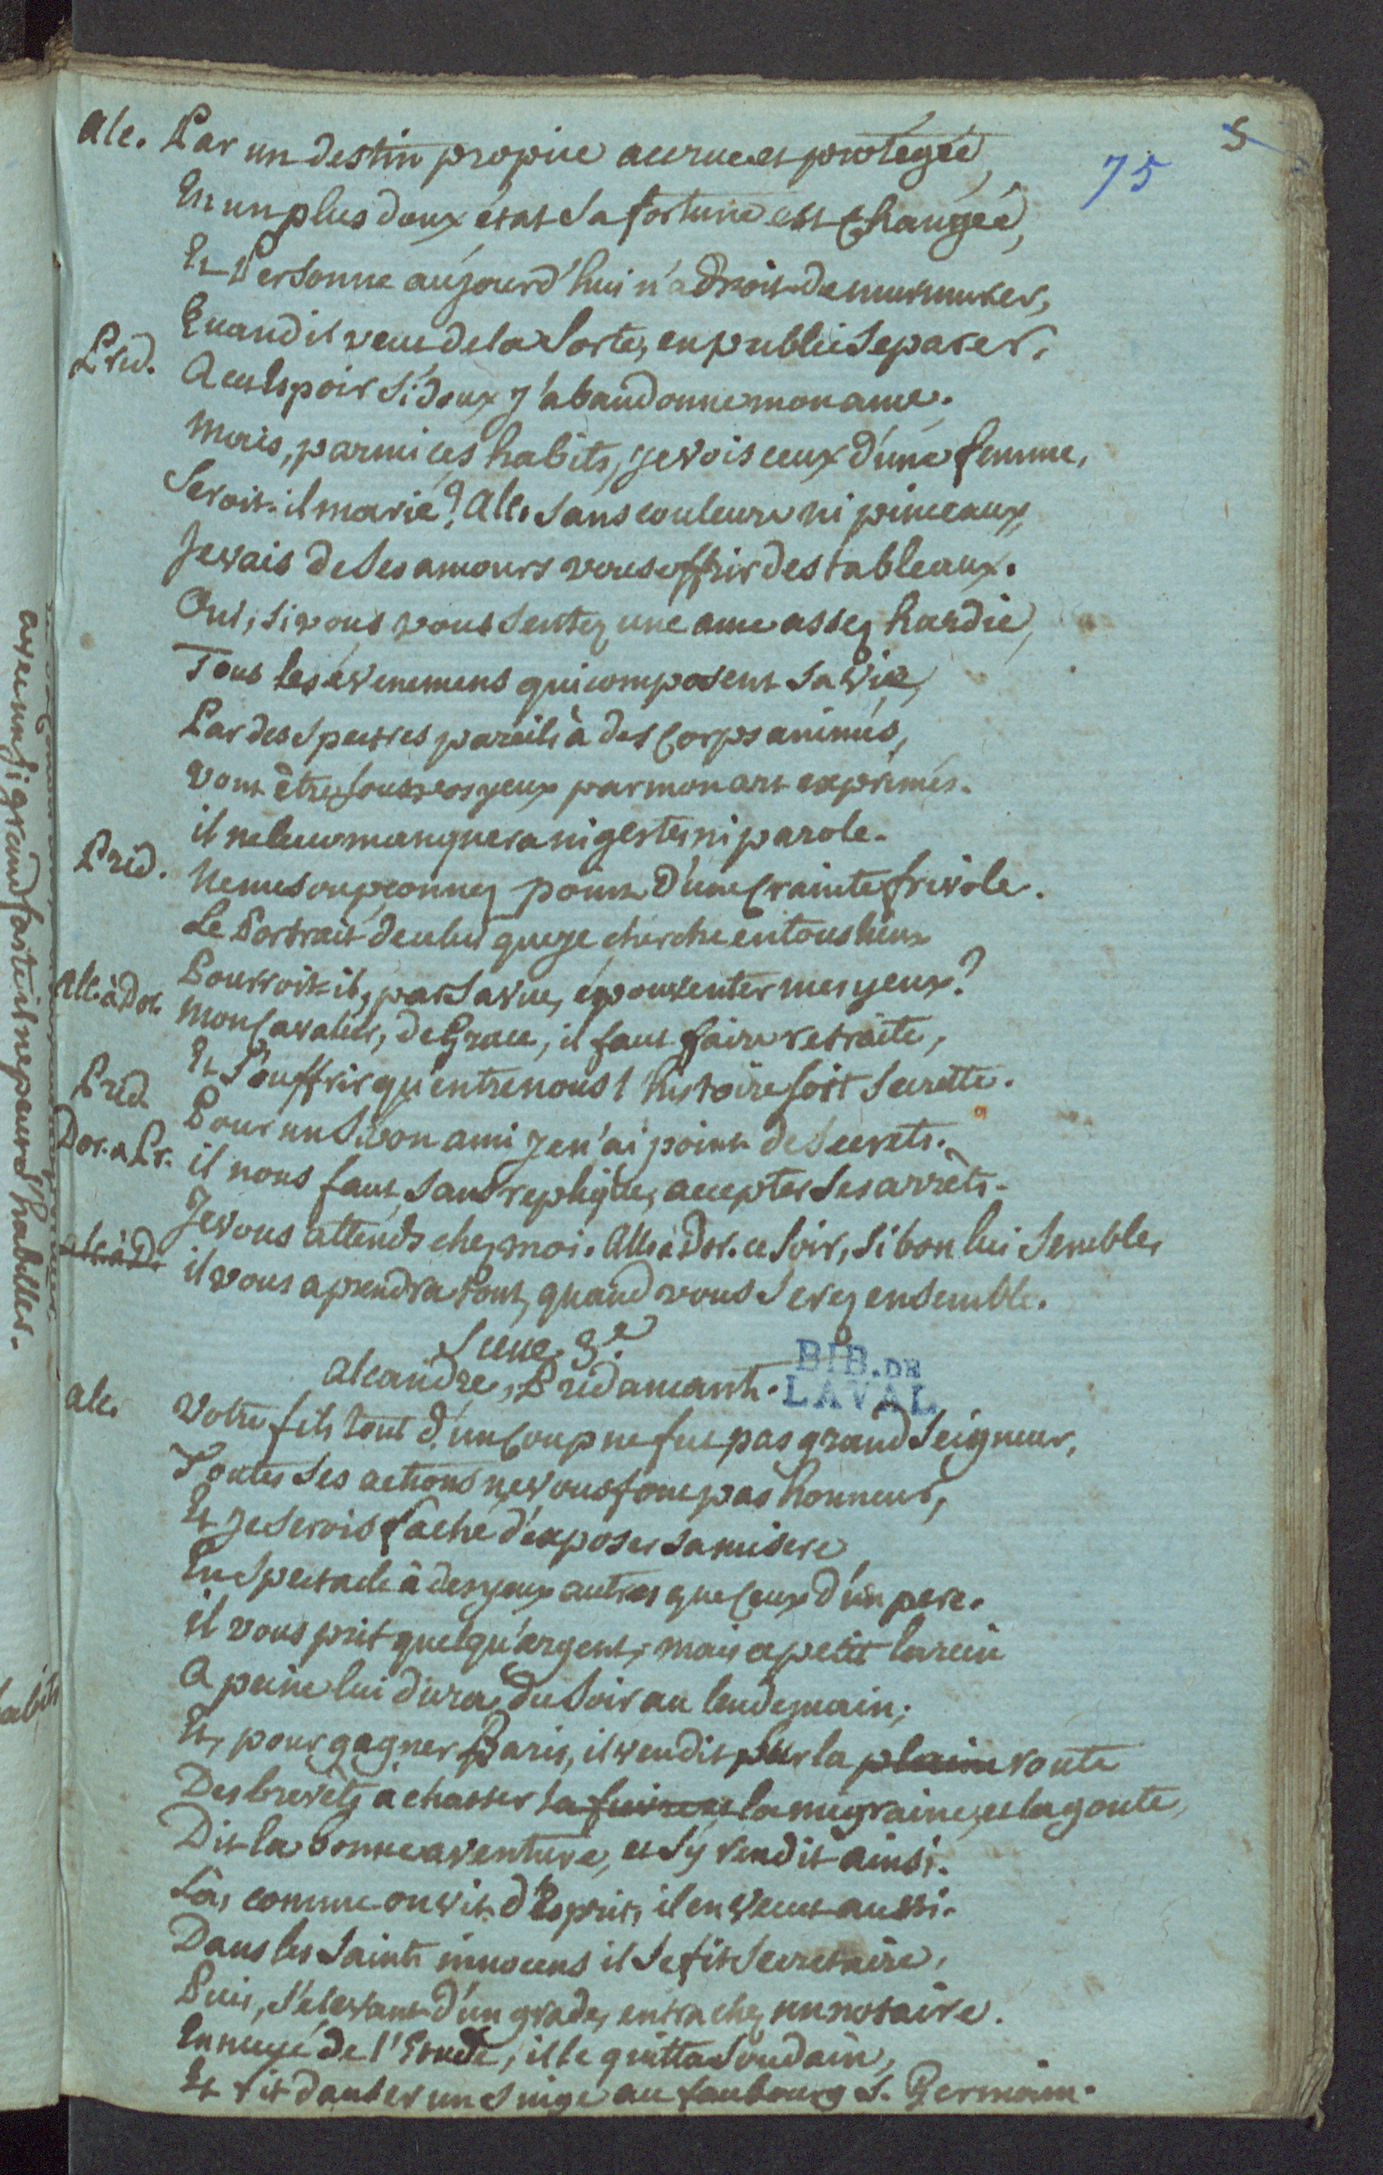 5
75
Alc. Par un destin propice accrue et protégée,
En un plus doux état sa fortune est changée,
Et Personne aujourd'hui n'a Droit de murmurer,
Quand il veut de la Sorte, en public se parer.
Prid. A cet Espoir si doux j'abandonne mon ame.
Mais, parmi ces habits, je vois ceux d'une femme,
Seroit-il marié? Alc. Sans couleurs ni pinceaux,
Je vais de Ses amours vous offrir des tableaux.
Oui, si vous vous Sentez une ame assez hardie,
Tous les évenemens qui composent Sa Vie,
Par des Spectres pareils à des Corps animés,
Vont être sous vos yeux par mon art exprimés.
il ne leur manquera ni gestes ni parole.
Prid. Ne me soupçonnez point d'une Crainte frivole.
Le Portrait de celui que je cherche en tous lieux
Pourroit-il, par Sa vue, épouventer mes yeux?
Alc. à Dor. Mon Cavalier, de Grace, il faut faire retraite,
Et Souffrir qu'entre nous l'histoire soit Secrette.
Prid. Pour un Si bon ami je n'ai point de Secrets.
Dor. a Pr. il nous faut, sans replique, accepter Ses arrêts.
Je vous attends chez moi. Alc. à Dor. ce Soir, Si bon lui Semble,
Alc. à D. il vous aprendra tout, quand vous Serez ensemble.
Scene 3.e
Alcandre, Pridamant.
BIB. DE
LAVAL
Alc. Votre fils tout d'un Coup ne fut pas grand Seigneur,
Toutes Ses actions ne vous font pas honneur,
Et je Serois faché d'exposer sa misere
En Spectacle à des yeux autres que Ceux d'un pere.
il vous prit quelqu'argent; mais ce petit larcin
A peine lui dura du Soir au lendemain;
Et, pour gagner Paris, il vendit par la plaine route
Des brevets a chasser la fievre et la migraine, et la goute,
Dit la bonne aventure, et s'y rendit ainsi.
Là, comme on vit d'Esprit, il en vecut aussi.
Dans les Saints innocens il Se fit Secretaire,
Puis, S'élevant d'un grade, entra chez un notaire.
Ennuyé de l'Etude, il le quitta Soudain,
Et fit danser un Singe au faubourg S. Germain.
avec un si grand faste il ne peut d'habiller.
habits